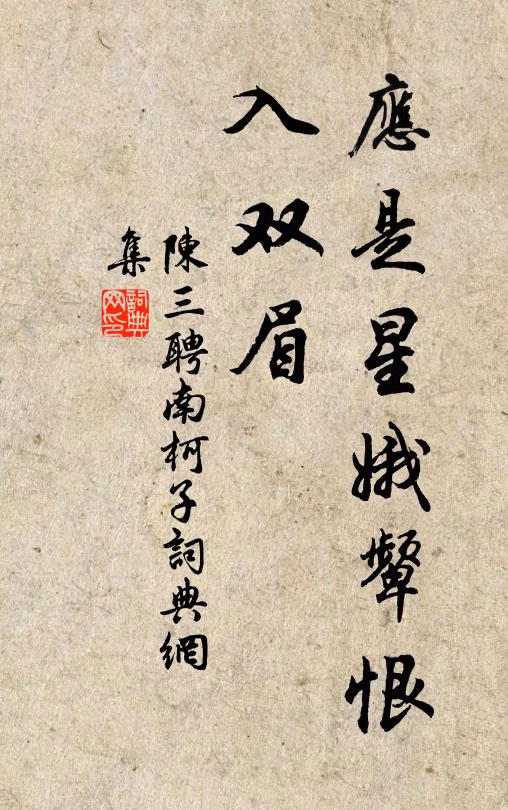 應是星娥顰恨
入双眉
陳三聘南柯子詞典網
集
詞典
网印